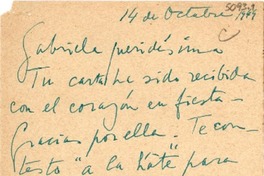 14 de Octubre 1949
Gabriela queridísima
Tu carta he sido recibida
con el corazón en fiesta-
Gracias por ella. Te con-
testo "a la Kate" para